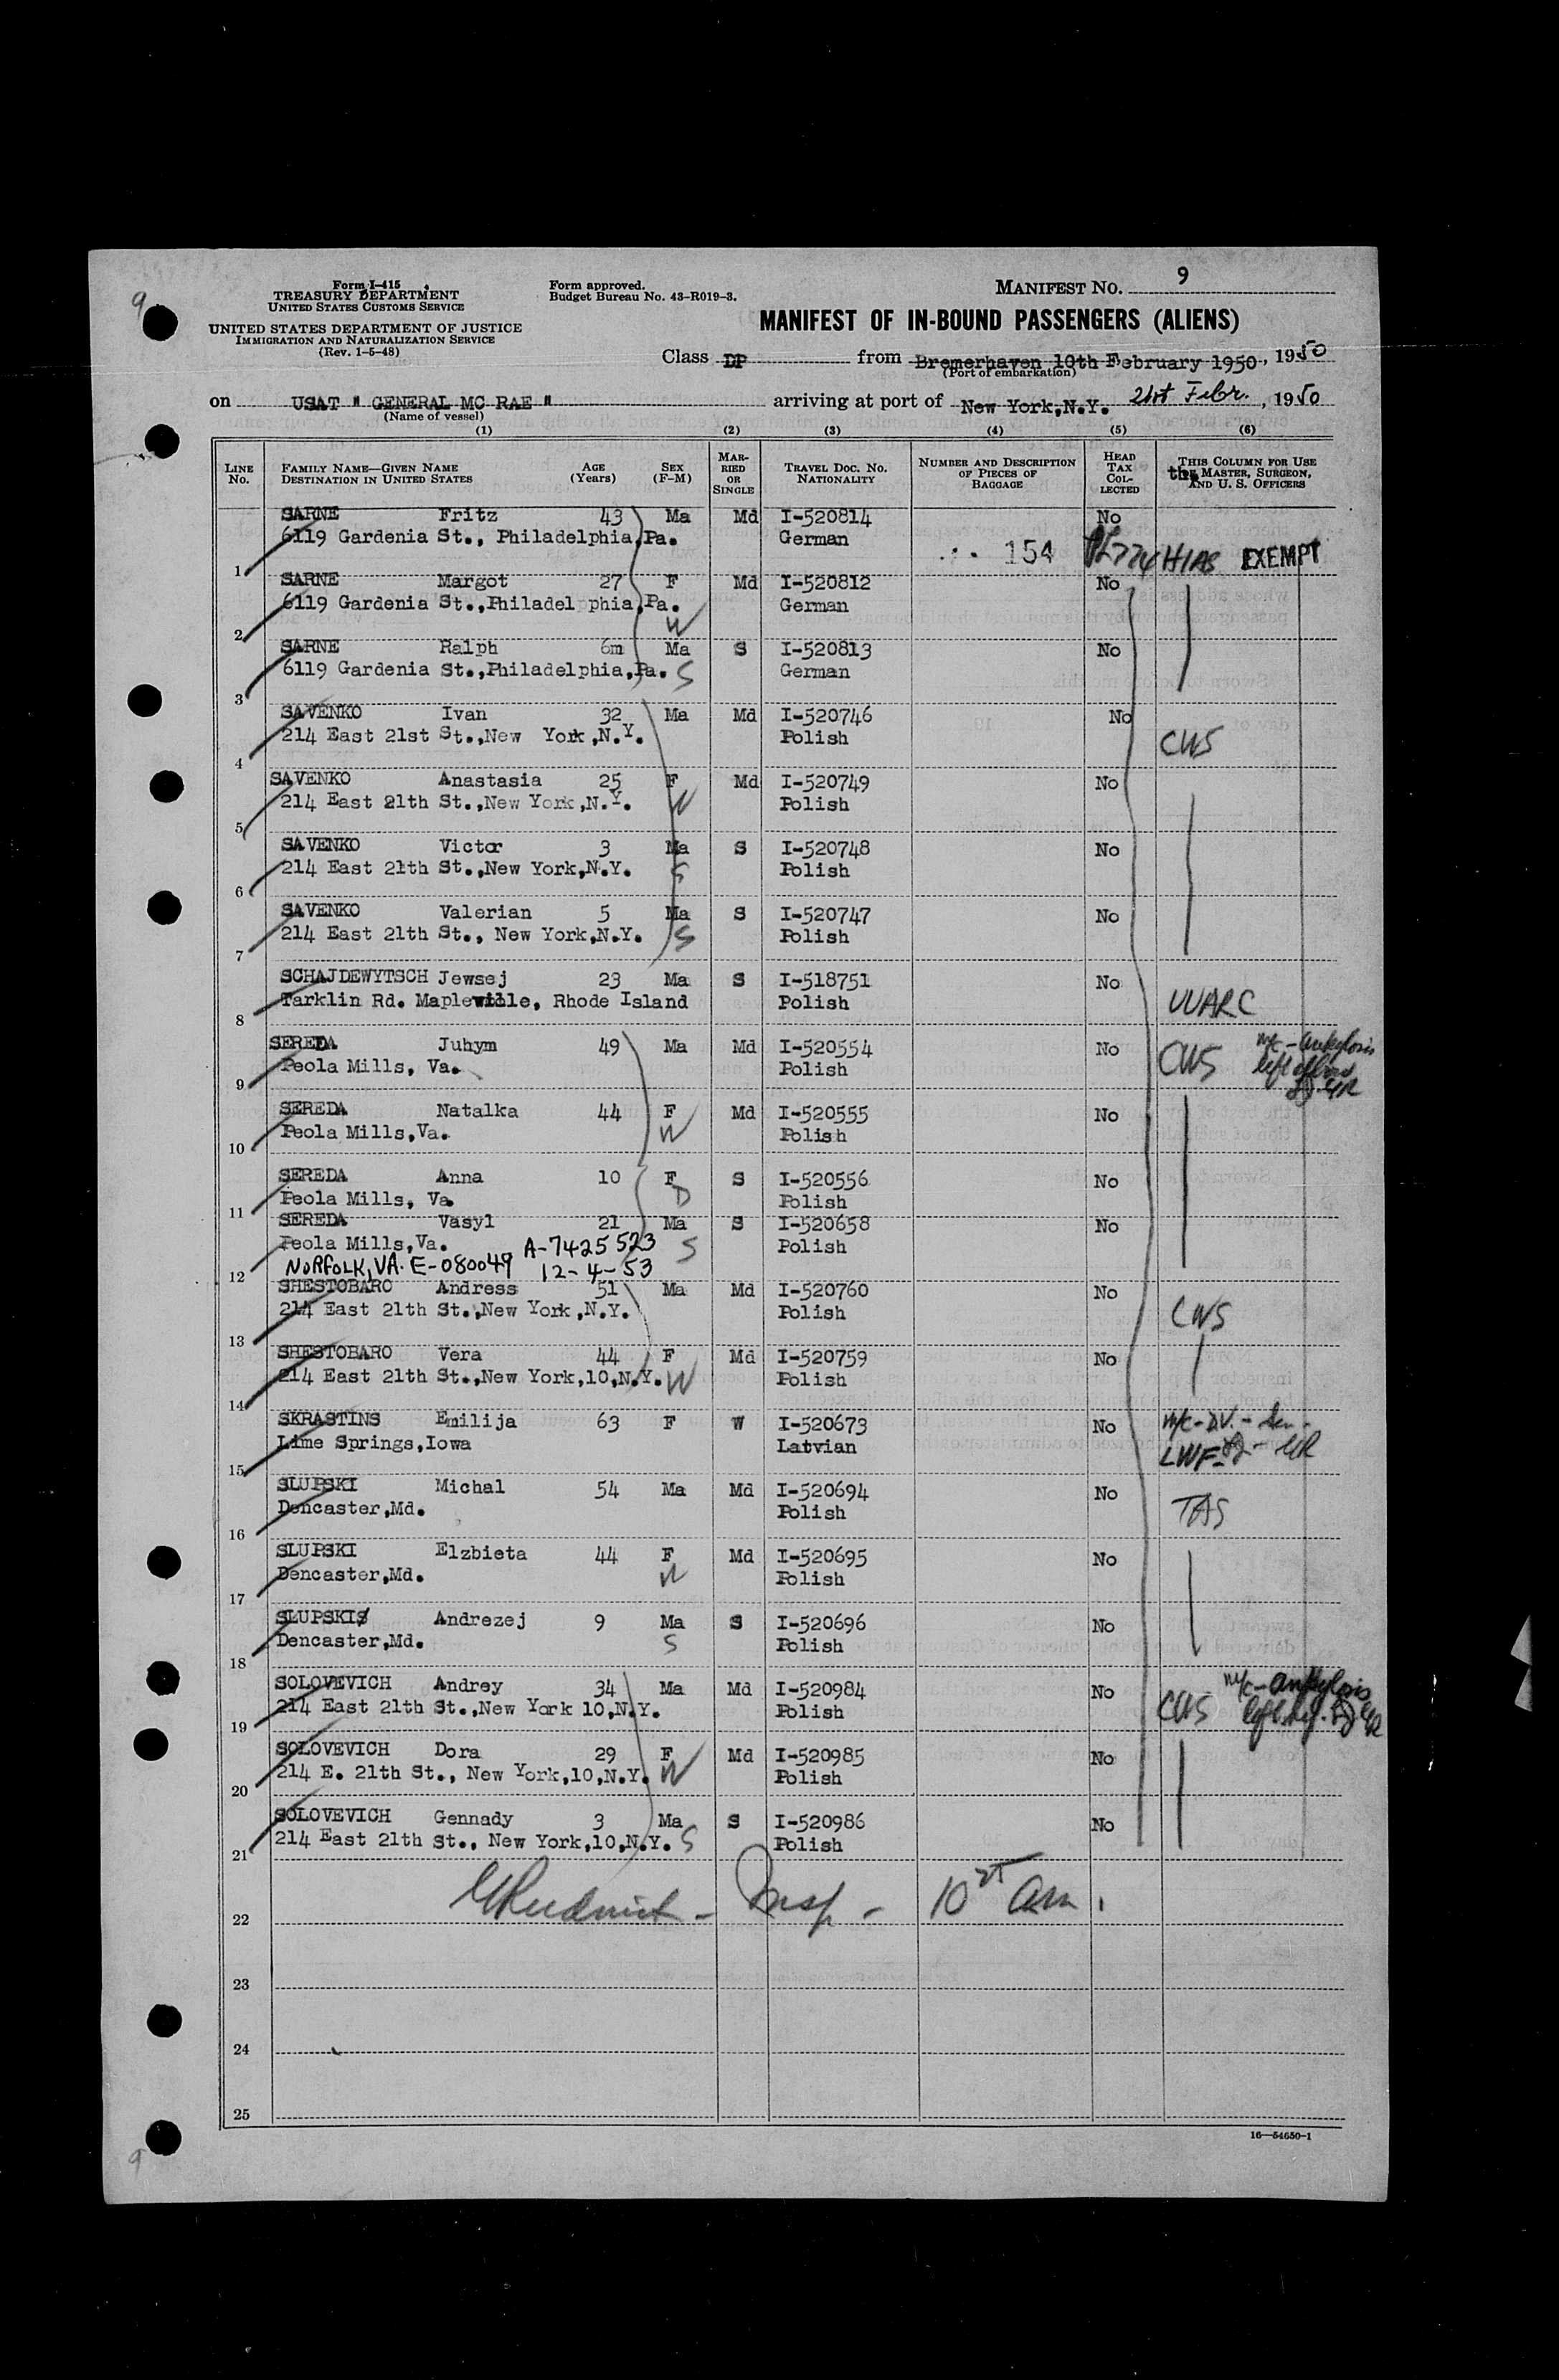 9
Form I-415
TREASURY DEPARTMENT
UNITED STATES CUSTOMS SERVICE
UNITED STATES DEPARTMENT OF JUSTICE
IMMIGRATION AND NATURALIZATION SERVICE
(Rev. 1-5-48)
Form approved.
Budget Bureau No. 43-R019-3.
MANIFEST NO. 9
MANIFEST OF IN-BOUND PASSENGERS (ALIENS)
Class DP from Bremerhaven 10th February 1950, 1950
(Port of embarkation)
on USAT " GENERAL MC RAE " arriving at port of New York,N.Y. 21st Febr., 1950
(Name of vessel)
(1) (2) (3) (4) (5) (6)
LINE No. FAMILY NAME—GIVEN NAME DESTINATION IN UNITED STATES AGE (Years) SEX (F-M) MARRIED OR SINGLE TRAVEL DOC. NO. NATIONALITY NUMBER AND DESCRIPTION OF PIECES OF BAGGAGE HEAD TAX COLLECTED THIS COLUMN FOR USE the MASTER, SURGEON, AND U. S. OFFICERS
SARNE Fritz 43 Ma Md I-520814 No
1 6119 Gardenia St., Philadelphia,Pa. German 154 PL774 HIAS EXEMPT
SARNE Margot 27 F Md I-520812 No
2 6119 Gardenia St.,Philadel phia,Pa. W German
SARNE Ralph 6m Ma S I-520813 No
3 6119 Gardenia St.,Philadelphia,Pa. S German
SAVENKO Ivan 32 Ma Md I-520746 No
4 214 East 21st St.,New York,N.Y. Polish CWS
SAVENKO Anastasia 25 F Md I-520749 No
5 214 East 21th St.,New York,N.Y. W Polish
SAVENKO Victor 3 Ma S I-520748 No
6 214 East 21th St.,New York,N.Y. S Polish
SAVENKO Valerian 5 Ma S I-520747 No
7 214 East 21th St., New York,N.Y. S Polish
SCHAJDEWYTSCH Jewsej 23 Ma S I-518751 No
8 Tarklin Rd. Mapleville, Rhode Island Polish UUARC
SEREDA Juhym 49 Ma Md I-520554 No
9 Peola Mills, Va. Polish CWS m/c-ankylosis left elbow
SEREDA Natalka 44 F Md I-520555 No
10 Peola Mills,Va. W Polish
SEREDA Anna 10 F S I-520556 No
11 Peola Mills, Va. D Polish
SEREDA Vasyl 21 Ma S I-520658 No
Peola Mills,Va. A-7425523 S Polish
12 NORFOLK, VA. E-080049 12-4-53
SHESTOBARO Andress 51 Ma Md I-520760 No
13 214 East 21th St.,New York,N.Y. Polish CWS
SHESTOBARO Vera 44 F Md I-520759 No
14 214 East 21th St.,New York,10,N.Y. W Polish
SKRASTINS Emilija 63 F W I-520673 No m/c-D.V.-Sen.-
15 Lime Springs,Iowa Latvian LWF
SLUPSKI Michal 54 Ma Md I-520694 No
16 Dencaster,Md. Polish TAS
SLUPSKI Elzbieta 44 F Md I-520695 No
17 Dencaster,Md. W Polish
SLUPSKIS Andrezej 9 Ma S I-520696 No
18 Dencaster,Md. S Polish
SOLOVEVICH Andrey 34 Ma Md I-520984 No
19 214 East 21th St.,New York 10,N.Y. Polish CWS m/c-ankylosis left
SOLOVEVICH Dora 29 F Md I-520985 No
20 214 E. 21th St., New York,10,N.Y. W Polish
SOLOVEVICH Gennady 3 Ma S I-520986 No
21 214 East 21th St., New York,10,N.Y. S Polish
22 Insp - 10 am.
23
24
25
16—54650-1
9